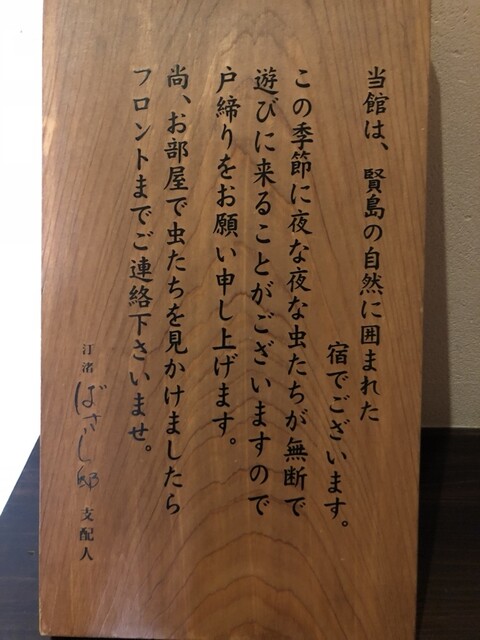 当館は、賢島の自然に囲まれた
宿でございます。
この季節に夜な夜な虫たちが無断で
遊びに来ることがございますので
戸締りをお願い申し上げます。
尚、お部屋で虫たちを見かけましたら
フロントまでご連絡下さいませ。
汀渚 ばさら邸 支配人